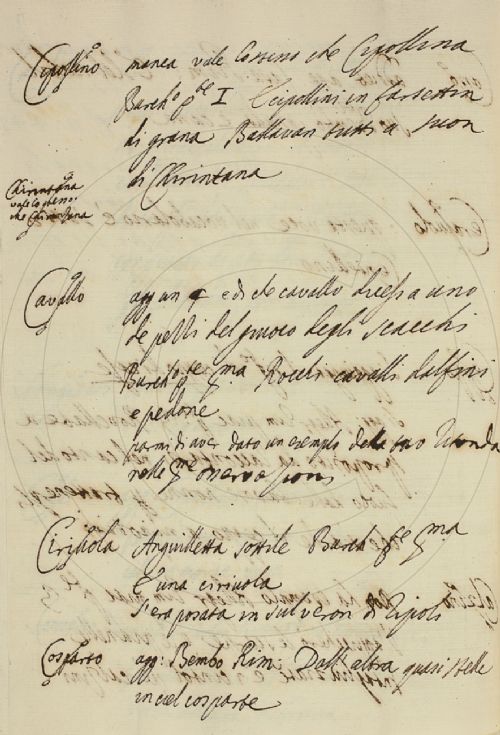 Cipollino manca vale lo stesso che Cipollina
Burch.º p.te I I cipollini in farsettin
di grana Ballavan tutti a suon
di Chirintana
Chirintana
vale lo stesso
che Chirintana
Cavallo agg. un § e di che cavallo dicesi a uno
de pezzi del giuoco degli scacchi
Burch.º p.te p.ma Rocchi cavalli dalfini
e pedone
parmi di aver dato un esempio della tavo ritonda
nelle p.me osservazioni
Ciriuola Anguilletta sottile Burch. p.te p.ma
E una ciriuola
S'era posata in sul veron di Tripoli
Cosparto agg. Bembo Rim. Dall'altra quasi stelle
in ciel cosparte